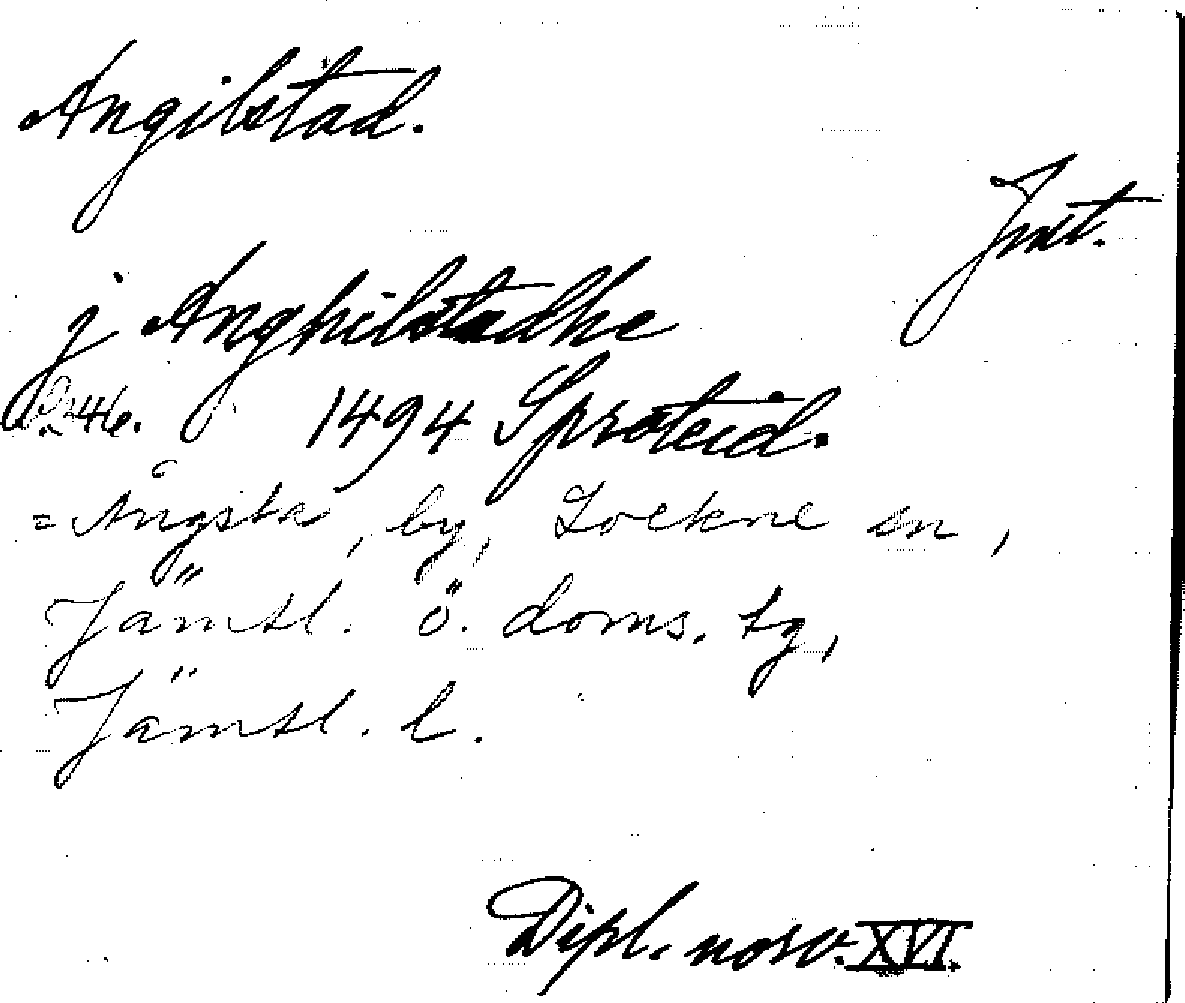 Angilstad.
Jmt.
j Anghilstadhe
s. 346. 1494 Sproteid.
= Ångsta, by, Lockne sn,
Jämtl. ö. doms. tg,
Jämtl. l.
Dipl. norv. XVI.